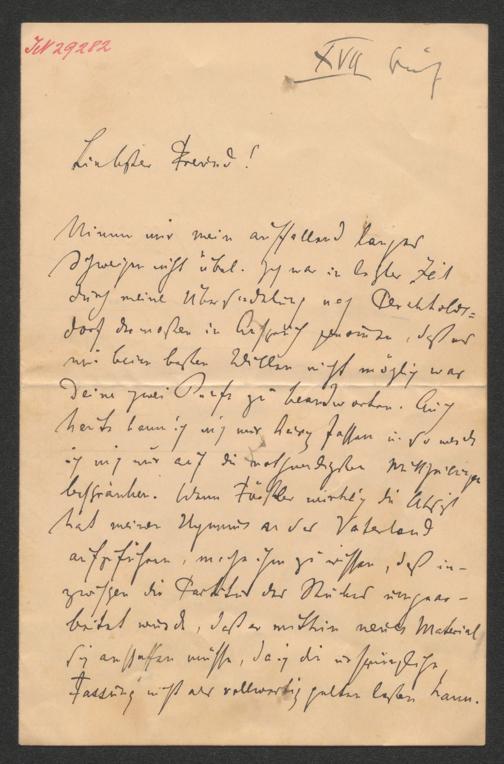 JN 29282
XVII
Liebster Freund!
Nimm mir mein auffallend langes
Schweigen nicht übel. Ich war in letzter Zeit
durch meine Übersiedelung nach Perchtolds-
dorf dermaßen in Anspruch genommen, daß es
mir beim besten Willen nicht möglich war
Deine zwei Briefe zu beantworten. Auch
heute kann ich mich nur kurz fassen u. so werde
ich mich nur auf die nothwendigsten Mittheilungen
beschränken. Wenn wirklich die Absicht
hat meinen Hymnus an das Vaterland
aufzuführen, mache ihm zu wissen, daß in-
zwischen die Partitur des Stückes umgear-
beitet wurde, daß er mithin neues Material
sich anschaffen müsse, da ich die ursprüngliche
Fassung nicht als vollwertig gelten lassen kann.